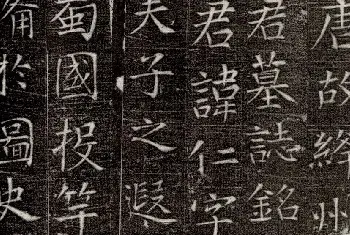 唐故絳州
君墓誌銘
君諱仁字
夫子之遐
蜀國投竿
備於圖史